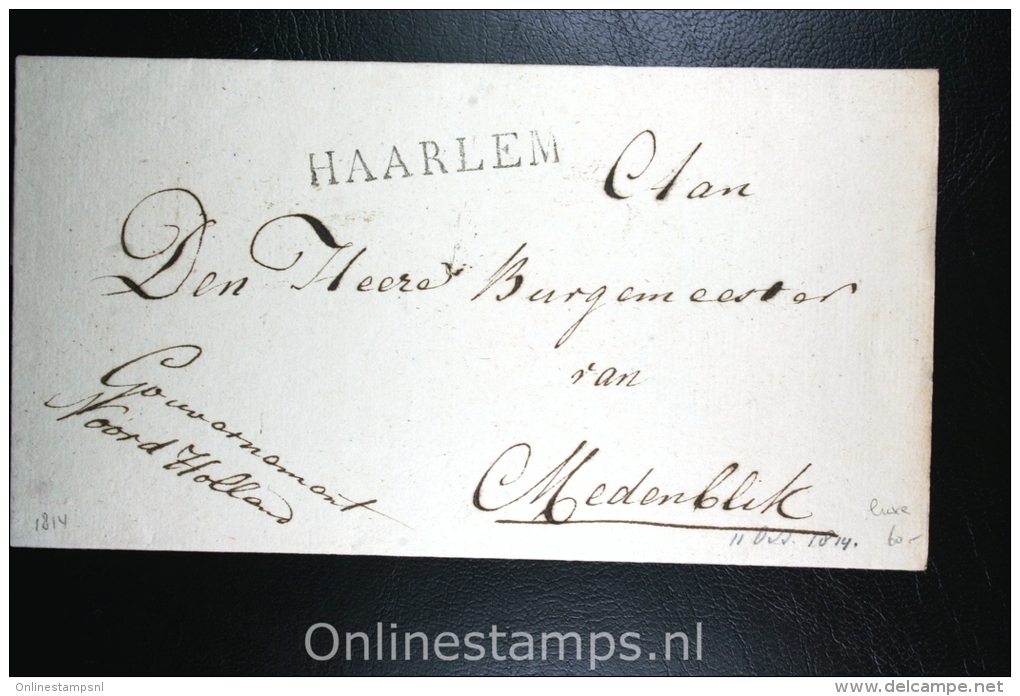 HAARLEM
Aan
Den Heere Burgemeester
van
Medenblik
Gouvernement
Noord Holland
1814
luxe
60-
11 Oct. 1814.
Onlinestamps.nl
Onlinestampsnl
http://www.delcampe.net